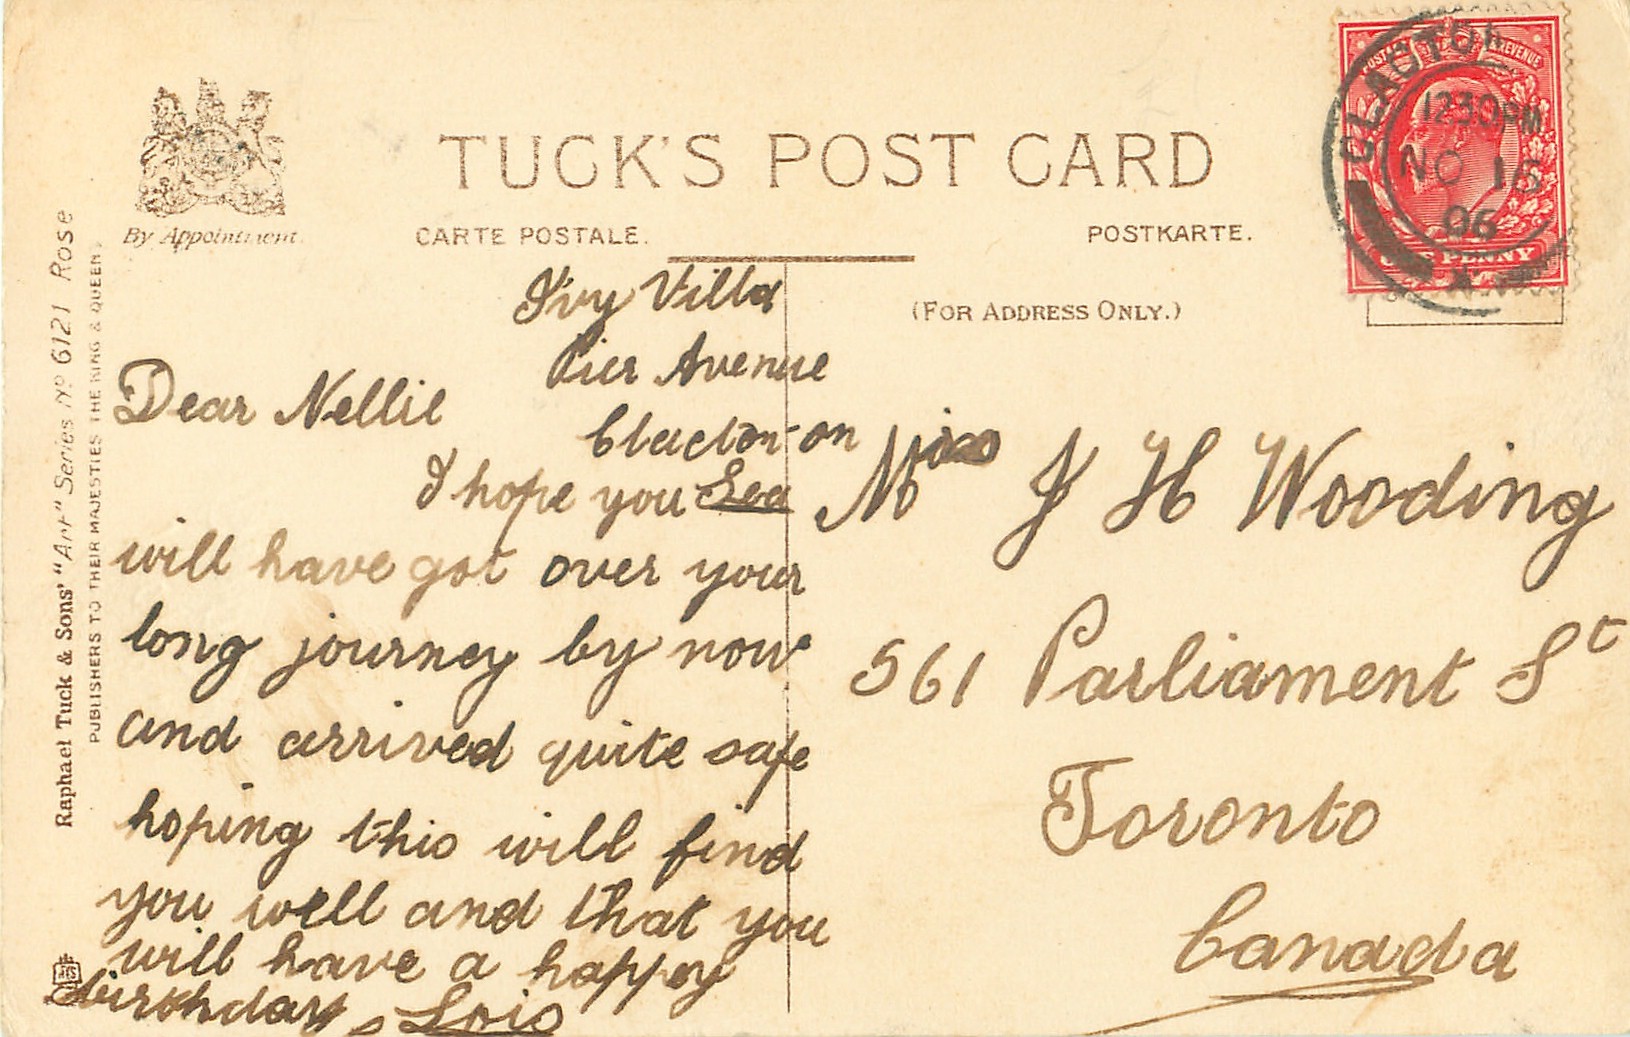 TUCK'S POST CARD
By Appointment.
CARTE POSTALE.
POSTKARTE.
(FOR ADDRESS ONLY.)
Raphael Tuck & Sons' "Art" Series No 6121 Rose
PUBLISHERS TO THEIR MAJESTIES THE KING & QUEEN.
POSTAGE REVENUE
ONE PENNY
CLACTON
1230PM
NO 16
06
Ivy Villa
Pier Avenue
Clacton-on
Sea
Dear Nellie
I hope you
will have got over your
long journey by now
and arrived quite safe
hoping this will find
you well and that you
will have a happy
birthday
Lois
Miss J H Wooding
561 Parliament St
Toronto
Canada